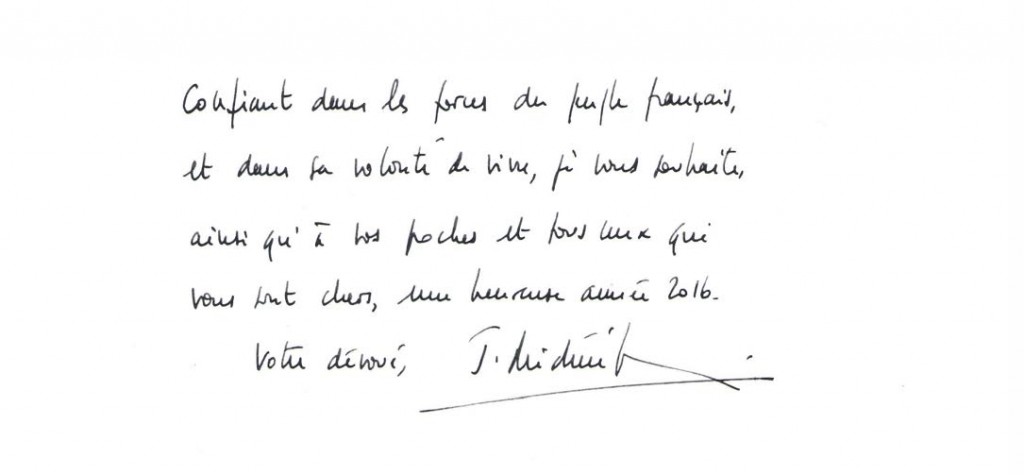 Confiant dans les forces du peuple français,
et dans sa volonté de vivre, je vous souhaite,
ainsi qu'à vos proches et tous ceux qui
vous sont chers, une heureuse année 2016.
Votre dévoué, J.